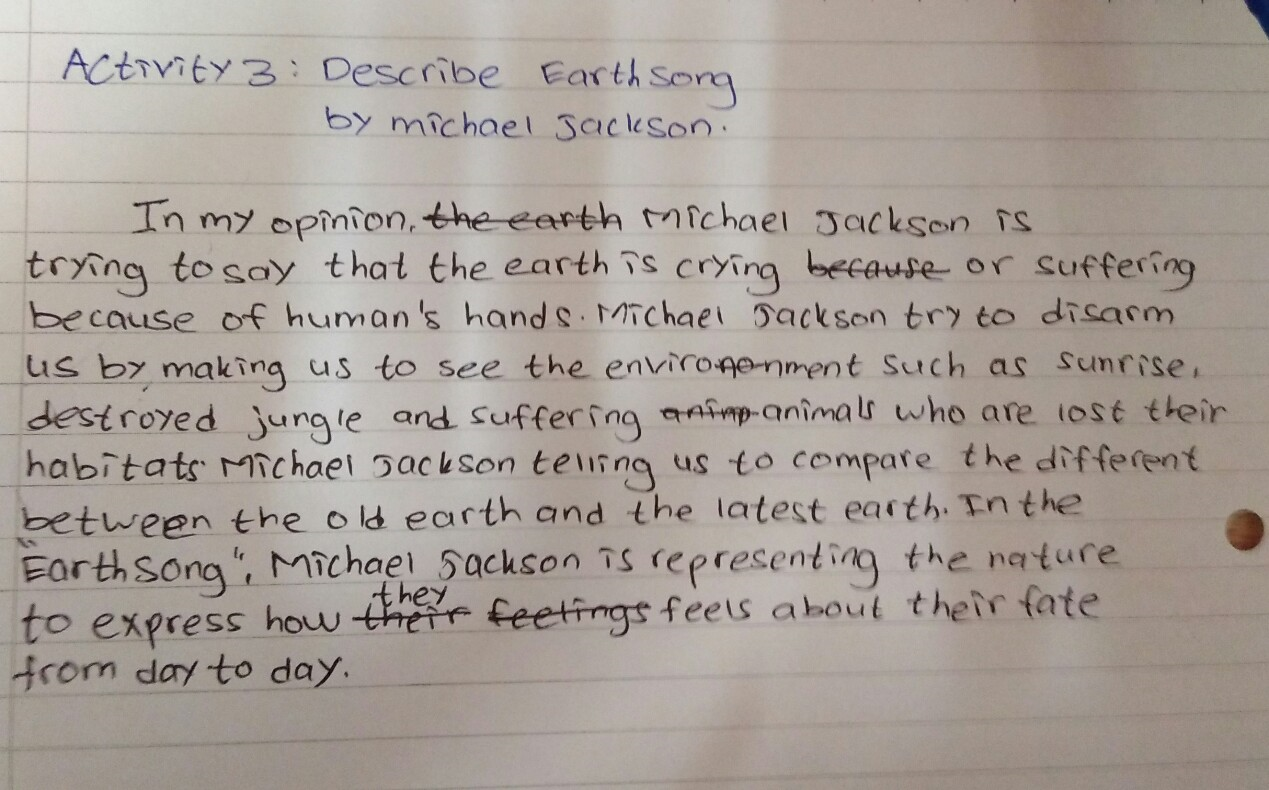 Activity 3: Describe Earth song
by michael Jackson.
In my opinion, the earth Michael Jackson is
trying to say that the earth is crying because or suffering
because of human's hands. Michael Jackson try to disarm
us by making us to see the environenment such as sunrise,
destroyed jungle and suffering animp animals who are lost their
habitats. Michael Jackson telling us to compare the different
between the old earth and the latest earth. In the
"Earth song", Michael Jackson is representing the nature
to express how their they feelings feels about their fate
from day to day.